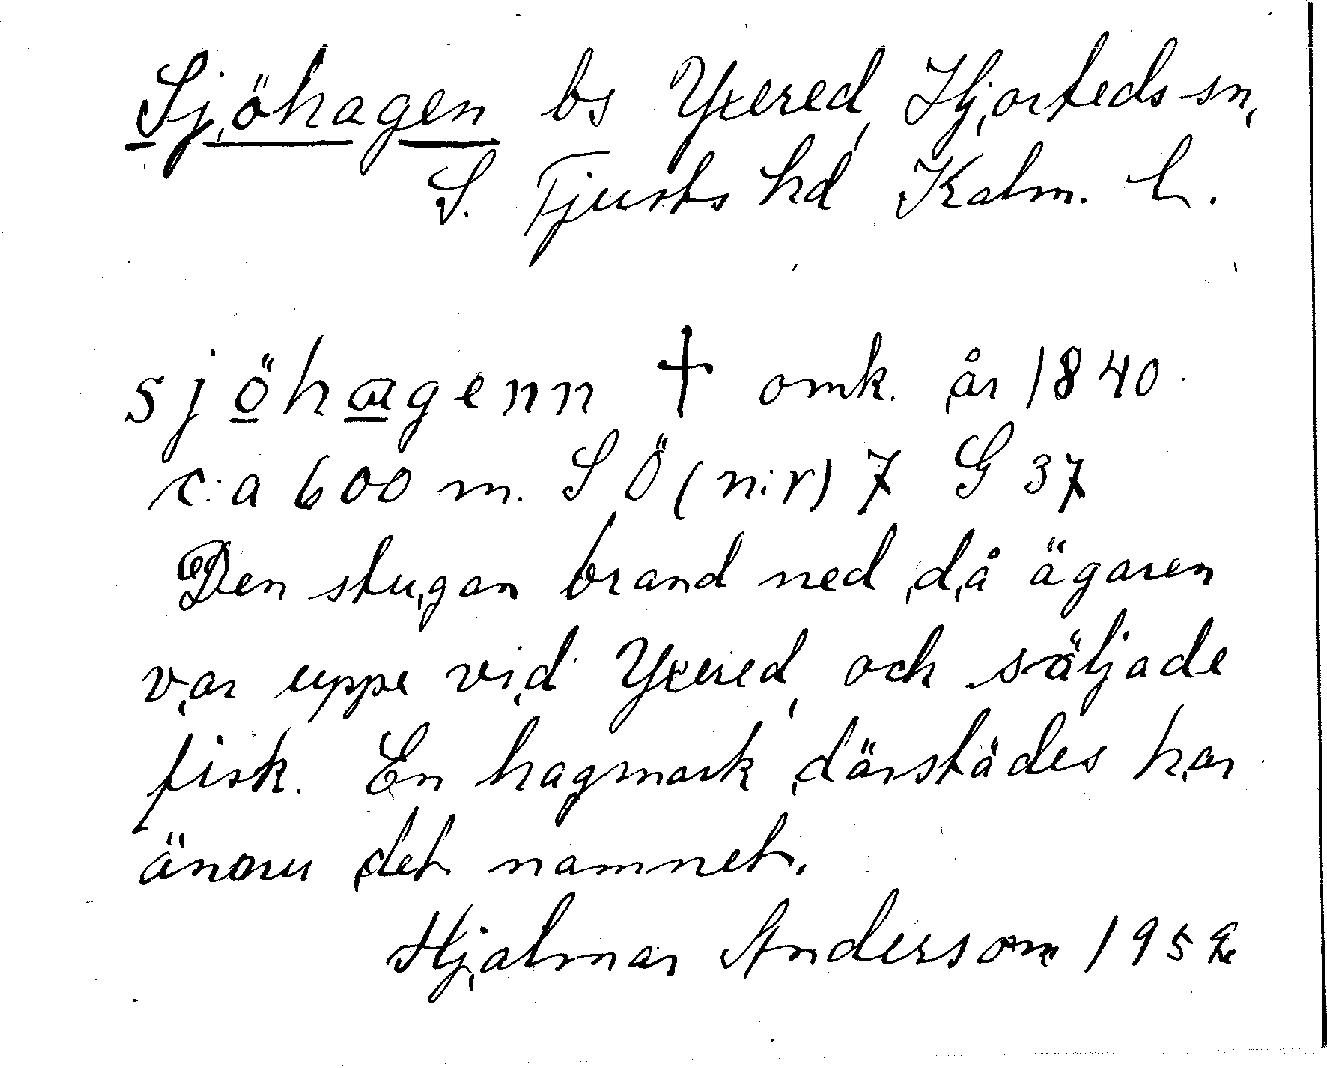 Sjöhagen bs Yxered Hjorteds sn,
S. Tjusts hd Kalm. L.
sjöhagenn † omk. år 1840
c:a 600 m. S Ö (n:r) 7 G 37
Den stugan brand ned då ägaren
var uppe vid Yxered och säljade
fisk. En hagmark därstädes har
ännu det namnet.
Hjalmar Anderson 1952